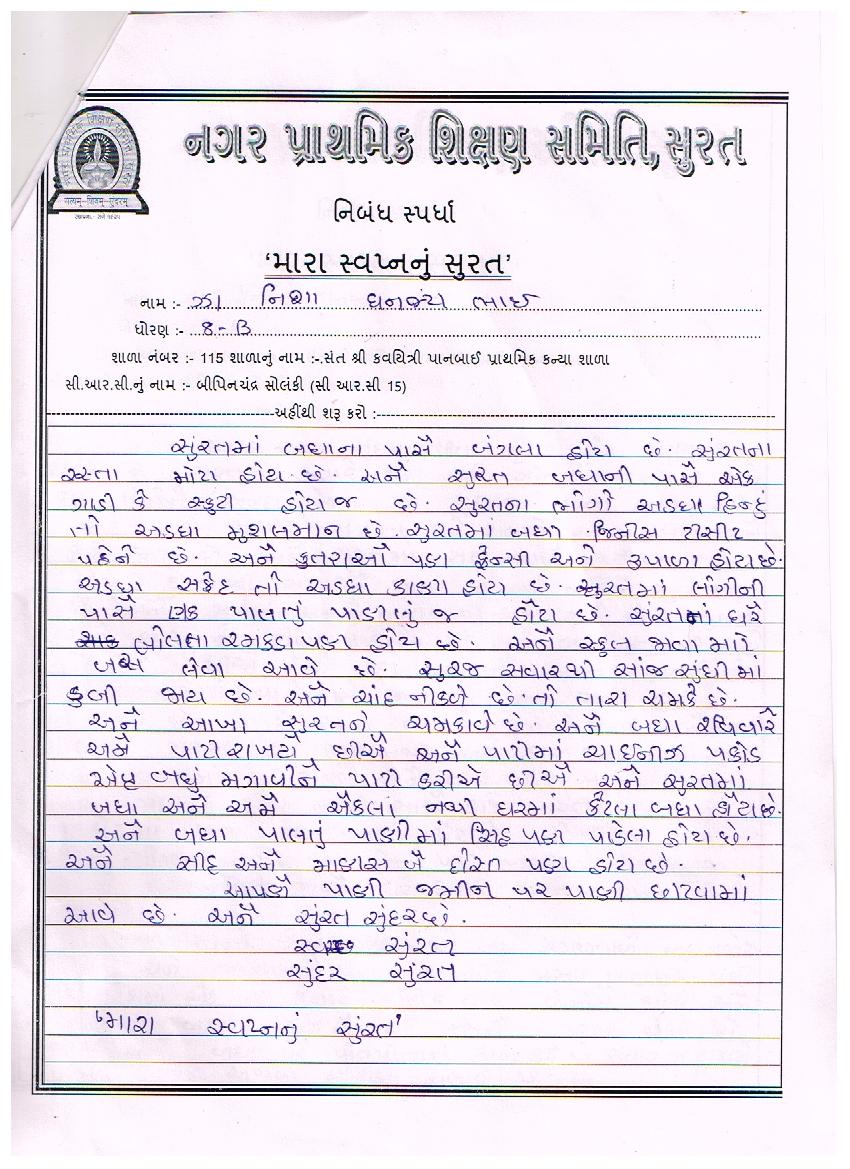 નગર પ્રાથમિક શિક્ષણ સમિતિ, સુરત
સત્યમ્-શિવમ્-સુંદરમ્
નિબંધ સ્પર્ધા
‘મારા સ્વપ્નનું સુરત’
નામ :- ઝા નિશા ધનજય ભાઈ
ધોરણ :- 8-B
શાળા નંબર :- 115 શાળાનું નામ :-.સંત શ્રી કવયિત્રી પાનબાઈ પ્રાથમિક કન્યા શાળા
સી.આર.સી.નું નામ :- બીપિનચંદ્ર સોલંકી (સી આર.સી 15)
અહીંથી શરૂ કરો :-
સુંરતમાં બધાના પાસે બંગલા હોટા છે. સુંરતના
રસ્તા મોટા હોટા છે. અને સુરત બધાની પાસે એક
ગાડી કે સ્કુટી હોટા જ છે. સુરતના ભોગો અડધા હિન્દું
તો અડધા મુશલમાન છે. સુરતમાં બધા જિનીસ ટીસીટ
પહેને છે. અને કુતરાઓ પણ ફેન્સી અને રુપાળા હોટા છે.
અડધા સફેદ તો અડધા કાળા હોટા છે. સુરતમાં લોગોની
પાસે એક પાલતું પાણીનું જ હોટા છે. સુંરતમાં ઘરે
બોલતા રમકડા પણ હોટા છે. અને સ્કુલ જાવા માટે
બસ લેવા આવે છે. સુરજ સવારથી સાંજ સુંધીમાં
ડુબી જાય છે. અને ચાંદ નીકળે છે. તો તારા ચમકે છે.
અને આખા સુરતને ચમકાવે છે. અને બધા રવિવારે
અમે પાટી રાખટો છીએ અને પાટીમાં ચાઈનીઝ પકોડ
બધુ મગાવીને પાટી કરીએ છીએ અને સુરતમાં
બધા અને અમે એકલા નથી ઘરમાં કેટલા બધા હોટા છે.
અને બધા પાલતું પાણીમાં સિંહ પણ પાડેલા હોટા છે.
અને સીહ અને માણસ બે દોસ્ત પણ હોટા છે.
આપણે પાણી જમીન પર પાણી છાટવામાં
આવે છે. અને સુંરત સુંદર છે.
સુંરત
સુંદર સુંરત
‘મારા સ્વપ્નનું સુંરત’